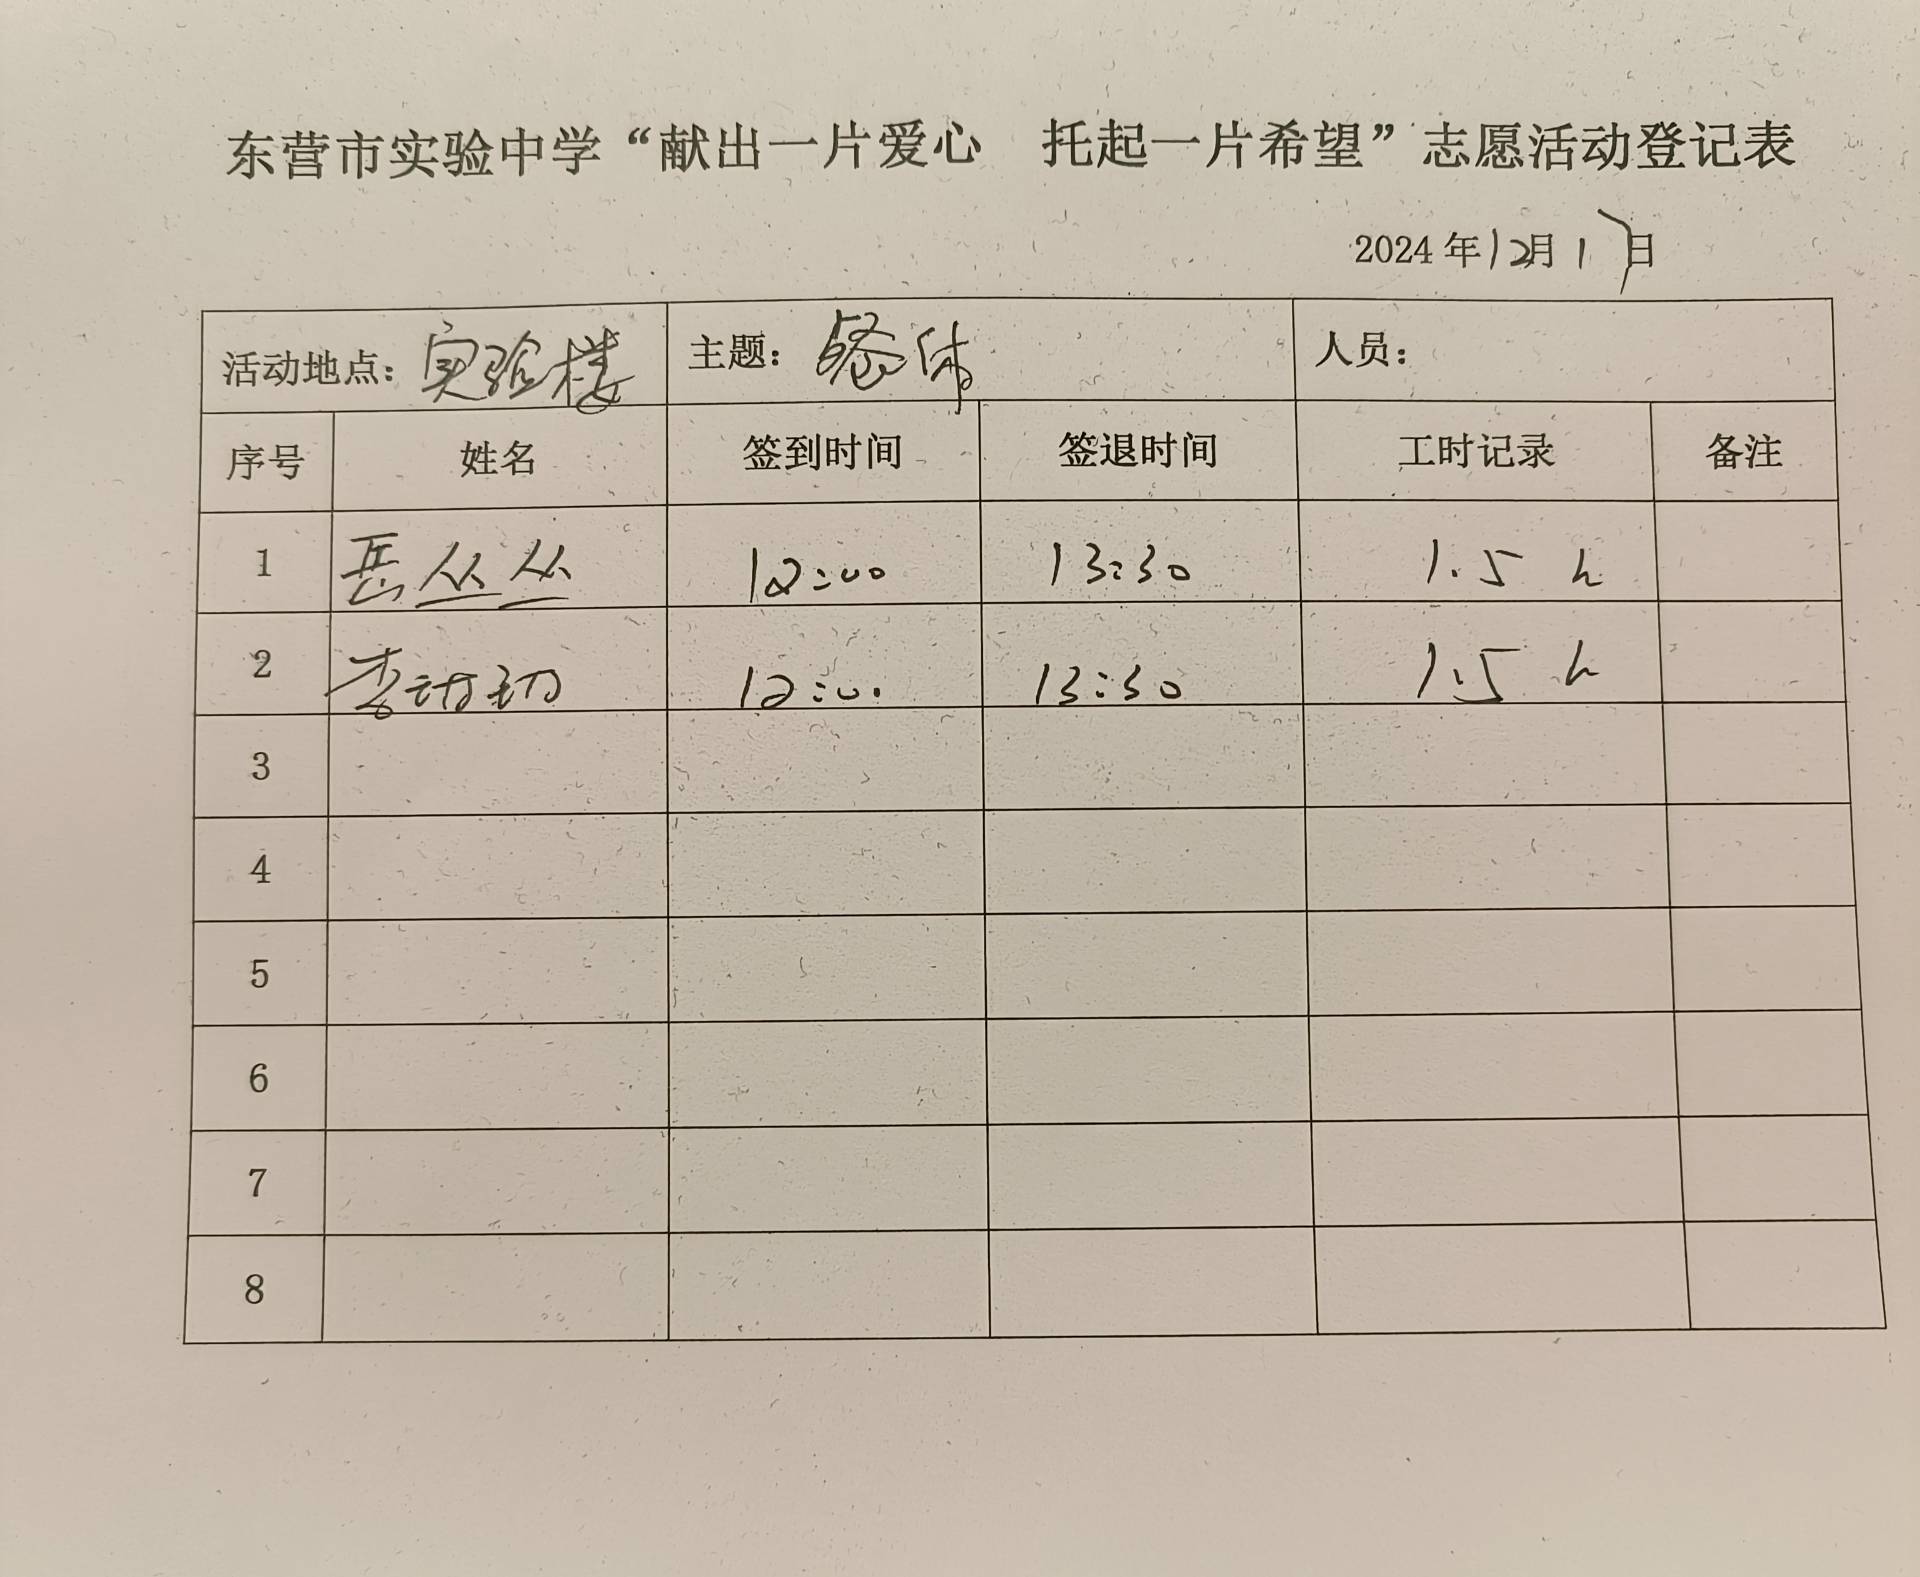 东营市实验中学“献出一片爱心 托起一片希望”志愿活动登记表
2024年12月17日
活动地点：实验楼 主题：餐休 人员：
序号 姓名 签到时间 签退时间 工时记录 备注
1 岳丛丛 12:00 13:30 1.5 h
2 李 12:00 13:30 1.5 h
3
4
5
6
7
8